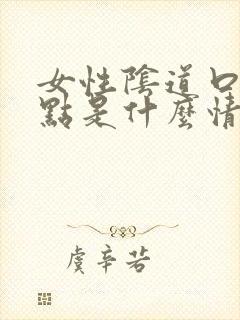 女性陰道口
點是什麼情
虞辛若